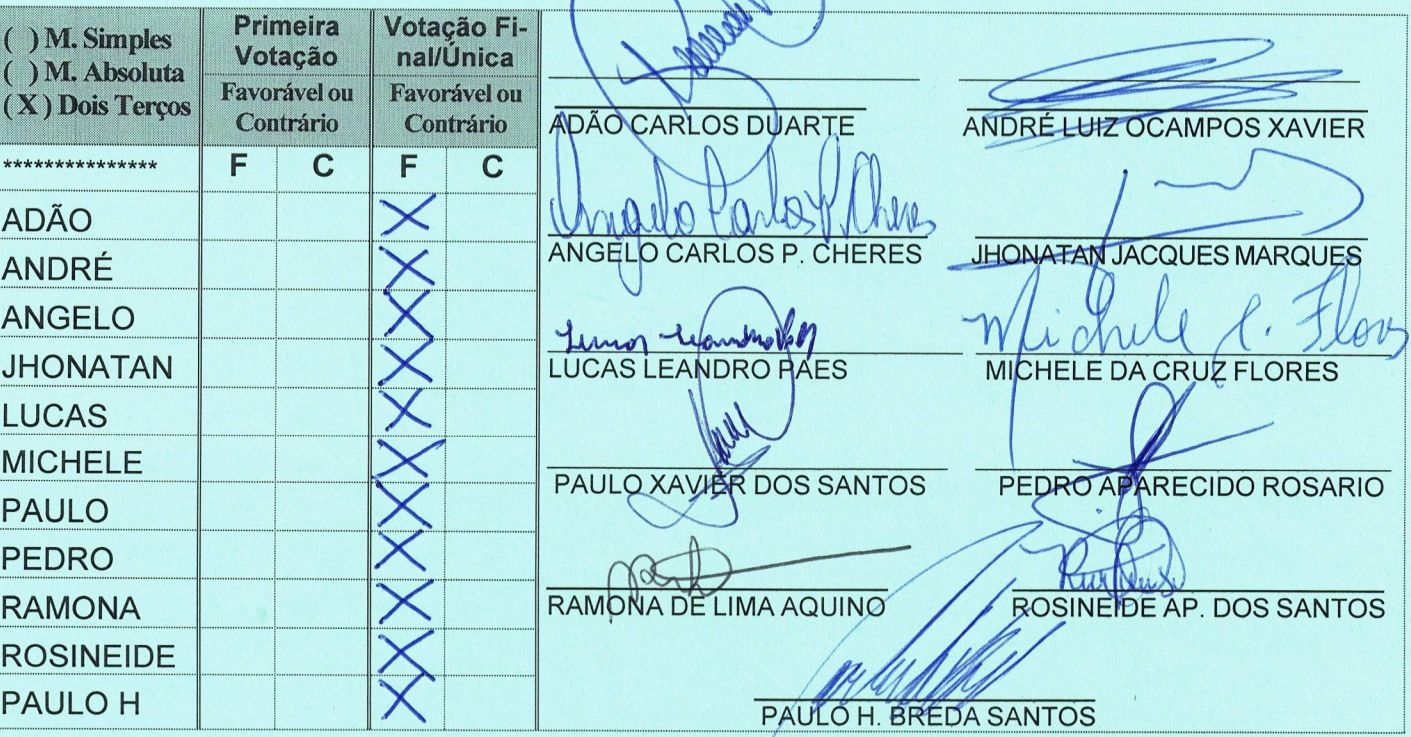 ( ) M. Simples
( ) M. Absoluta
( X ) Dois Terços
Primeira
Votação
Favorável ou
Contrário
Votação Fi-
nal/Única
Favorável ou
Contrário
*************** F C F C
ADÃO X
ANDRÉ X
ANGELO X
JHONATAN X
LUCAS X
MICHELE X
PAULO X
PEDRO X
RAMONA X
ROSINEIDE X
PAULO H X
ADÃO CARLOS DUARTE
ANDRÉ LUIZ OCAMPOS XAVIER
Angelo Carlos P. Cheres
ANGELO CARLOS P. CHERES
JHONATAN JACQUES MARQUES
Lucas Leandro Paes
LUCAS LEANDRO PAES
Michele C. Flores
MICHELE DA CRUZ FLORES
PAULO XAVIER DOS SANTOS
PEDRO APARECIDO ROSARIO
RAMONA DE LIMA AQUINO
ROSINEIDE AP. DOS SANTOS
PAULO H. BREDA SANTOS